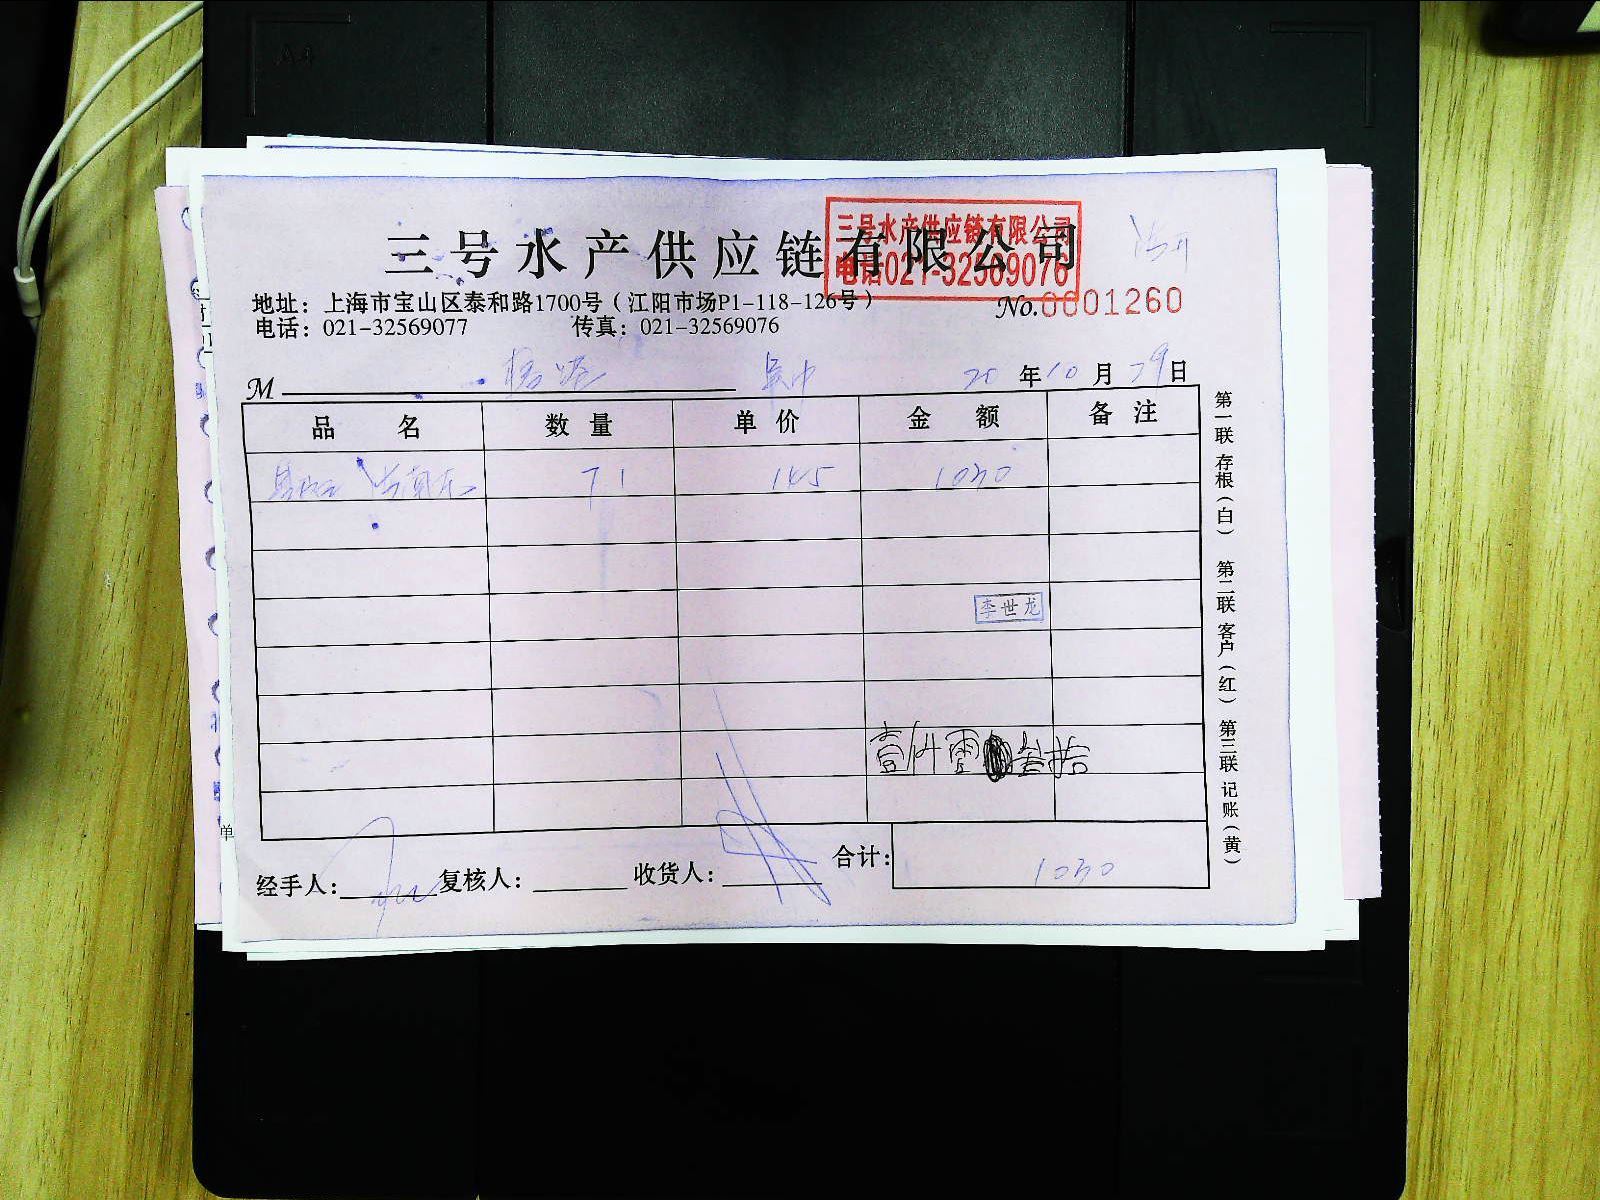 A4
三号水产供应链有限公司
三号水产供应链有限公司
电话021-32569076
地址：上海市宝山区泰和路1700号（江阳市场P1-118-126号）
No.0001260
电话：021-32569077 传真：021-32569076
M 吴中 20年10月29日
品名 数量 单价 金额 备注
71 145 1030
李世龙
壹仟零叁拾
合计：1030
经手人： 复核人： 收货人：
第一联 存根（白） 第二联 客户（红） 第三联 记账（黄）
单